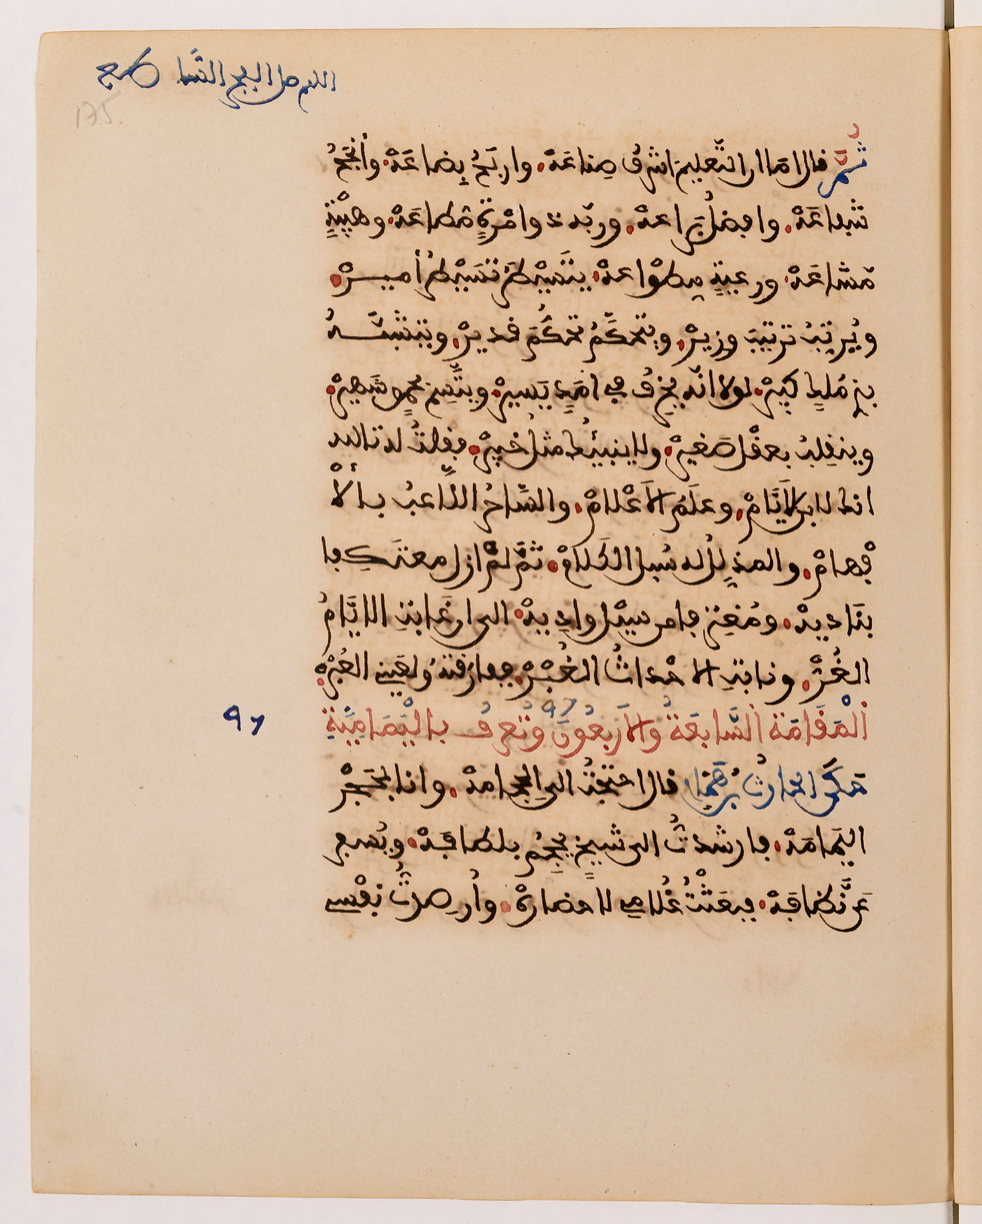 ثُمَّ قال اما ان التّعليم اشرف صِناعَهْ، واربَحُ بِضاعَهْ، وأنجَحُ
شَفاعَهْ، وافضلُ بَراعهْ، وربّه ذو امْرةٍ مُطاعَهْ، وهيْبةٍ
مّشاعَهْ، ورعيةٍ مِطْواعهْ، يتَسيْطَرُ تسَيْطُرَ أميـرْ،
ويُرتِّبُ ترتيبَ وزيرْ، ويتحكّمُ تحكُّمَ قديرْ، ويتشبّـهُ
بذِي مُلكٍ كَبِيرْ، لولا انّه يخرَفُ في امَدٍ يَسيرْ، ويتَّسِمُ بحمقٍ شَهيرْ،
ويتقلّبُ بعقْلٍ صَغيرْ، ولا ينبيُك مثلُ خَبيرْ، فقلتُ له تالله
انك لابن الأيّامْ، وعلَمُ الأعْلامْ، والسّاحرُ اللّاعبُ بـالأ
فْهامْ، والمذلّلُ له سُبل الكَلامْ، ثمّ لمْ ازل معتكِفا
بنَاديهْ، ومُغترِفا من سيْل واديهْ، الى ان غَابتِ الايّامُ
الغُرّْ، ونابتِ الاحْداثُ الغُبْرْ، ففارقتهُ ولعَينِي العُبْرْ،
اَلْمَقَامَة السَّابعَةُ والأرْبَعُونَ وتُعرفُ باليَمَامِيّةِ
47
47
حَكَى الحارثُ بنُ هَمّامٍ قال احتجْتُ الى الحِجامهْ، وانا بحَجْرِ
اليَمامَهْ، فارشدتُ الى شَيخٍ يحجُم بلطافهْ، ويُسفر
عَن نّظافَهْ، فبَعَثْتُ غُلامي لاحضارِهْ، وأرصدتُ نفْسي